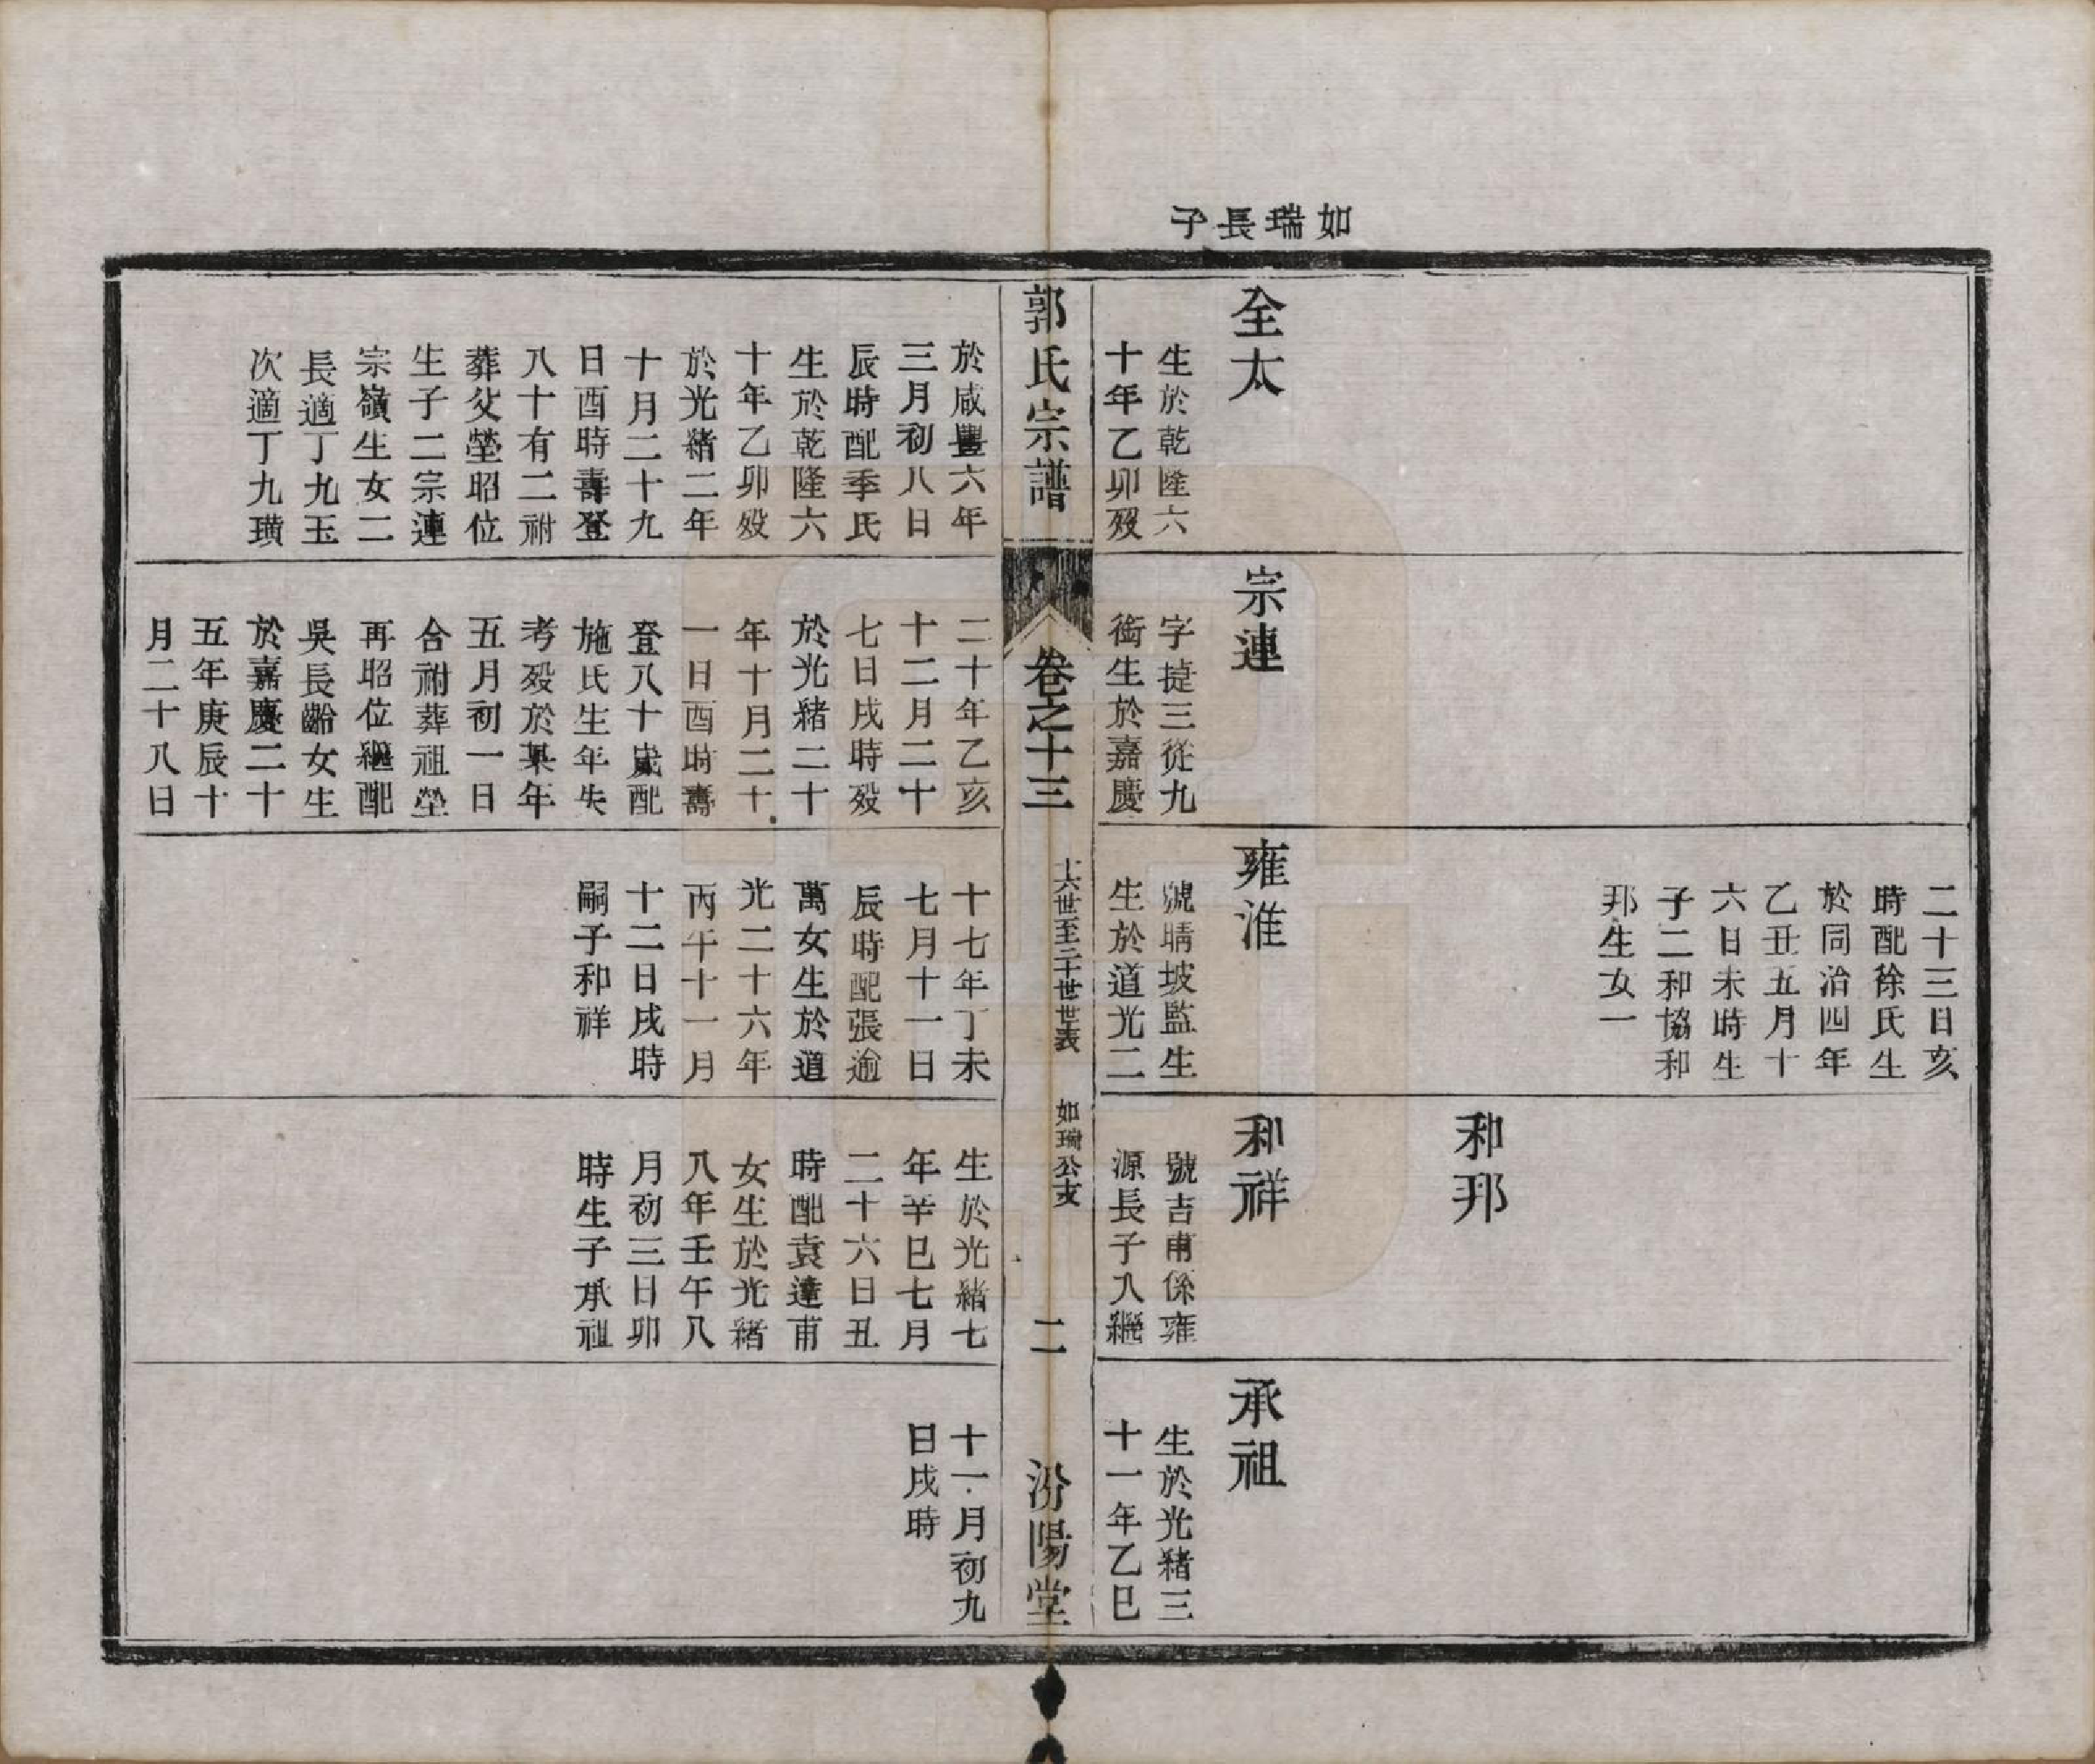 如瑞長子
全太
生於乾隆六
十年乙卯歿
宗連
字捷三從九
銜生於嘉慶
二十三日亥
時配徐氏生
於同治四年
乙丑五月十
六日未時生
子二和協和
邦生女一
雍淮
號晴坡監生
生於道光二
和邦
和祥
號吉甫係雍
源長子入繼
承祖
生於光緒三
十一年乙巳
郭氏宗譜
卷之十三
十六世至二十世世表
如瑞公支
二
汾陽堂
於咸豐六年
三月初八日
辰時配季氏
生於乾隆六
十年乙卯歿
於光緒二年
十月二十九
日酉時壽登
八十有二祔
葬父塋昭位
生子二宗連
宗嶺生女二
長適丁九玉
次適丁九璜
二十年乙亥
十二月二十
七日戌時歿
於光緒二十
年十月二十
一日酉時壽
登八十歲配
施氏生年失
考歿於某年
五月初一日
合祔葬祖塋
再昭位繼配
吳長齡女生
於嘉慶二十
五年庚辰十
月二十八日
十七年丁未
七月十一日
辰時配張逾
萬女生於道
光二十六年
丙午十一月
十二日戌時
嗣子和祥
生於光緒七
年辛巳七月
二十六日丑
時配袁達甫
女生於光緒
八年壬午八
月初三日卯
時生子承祖
十一月初九
日戌時